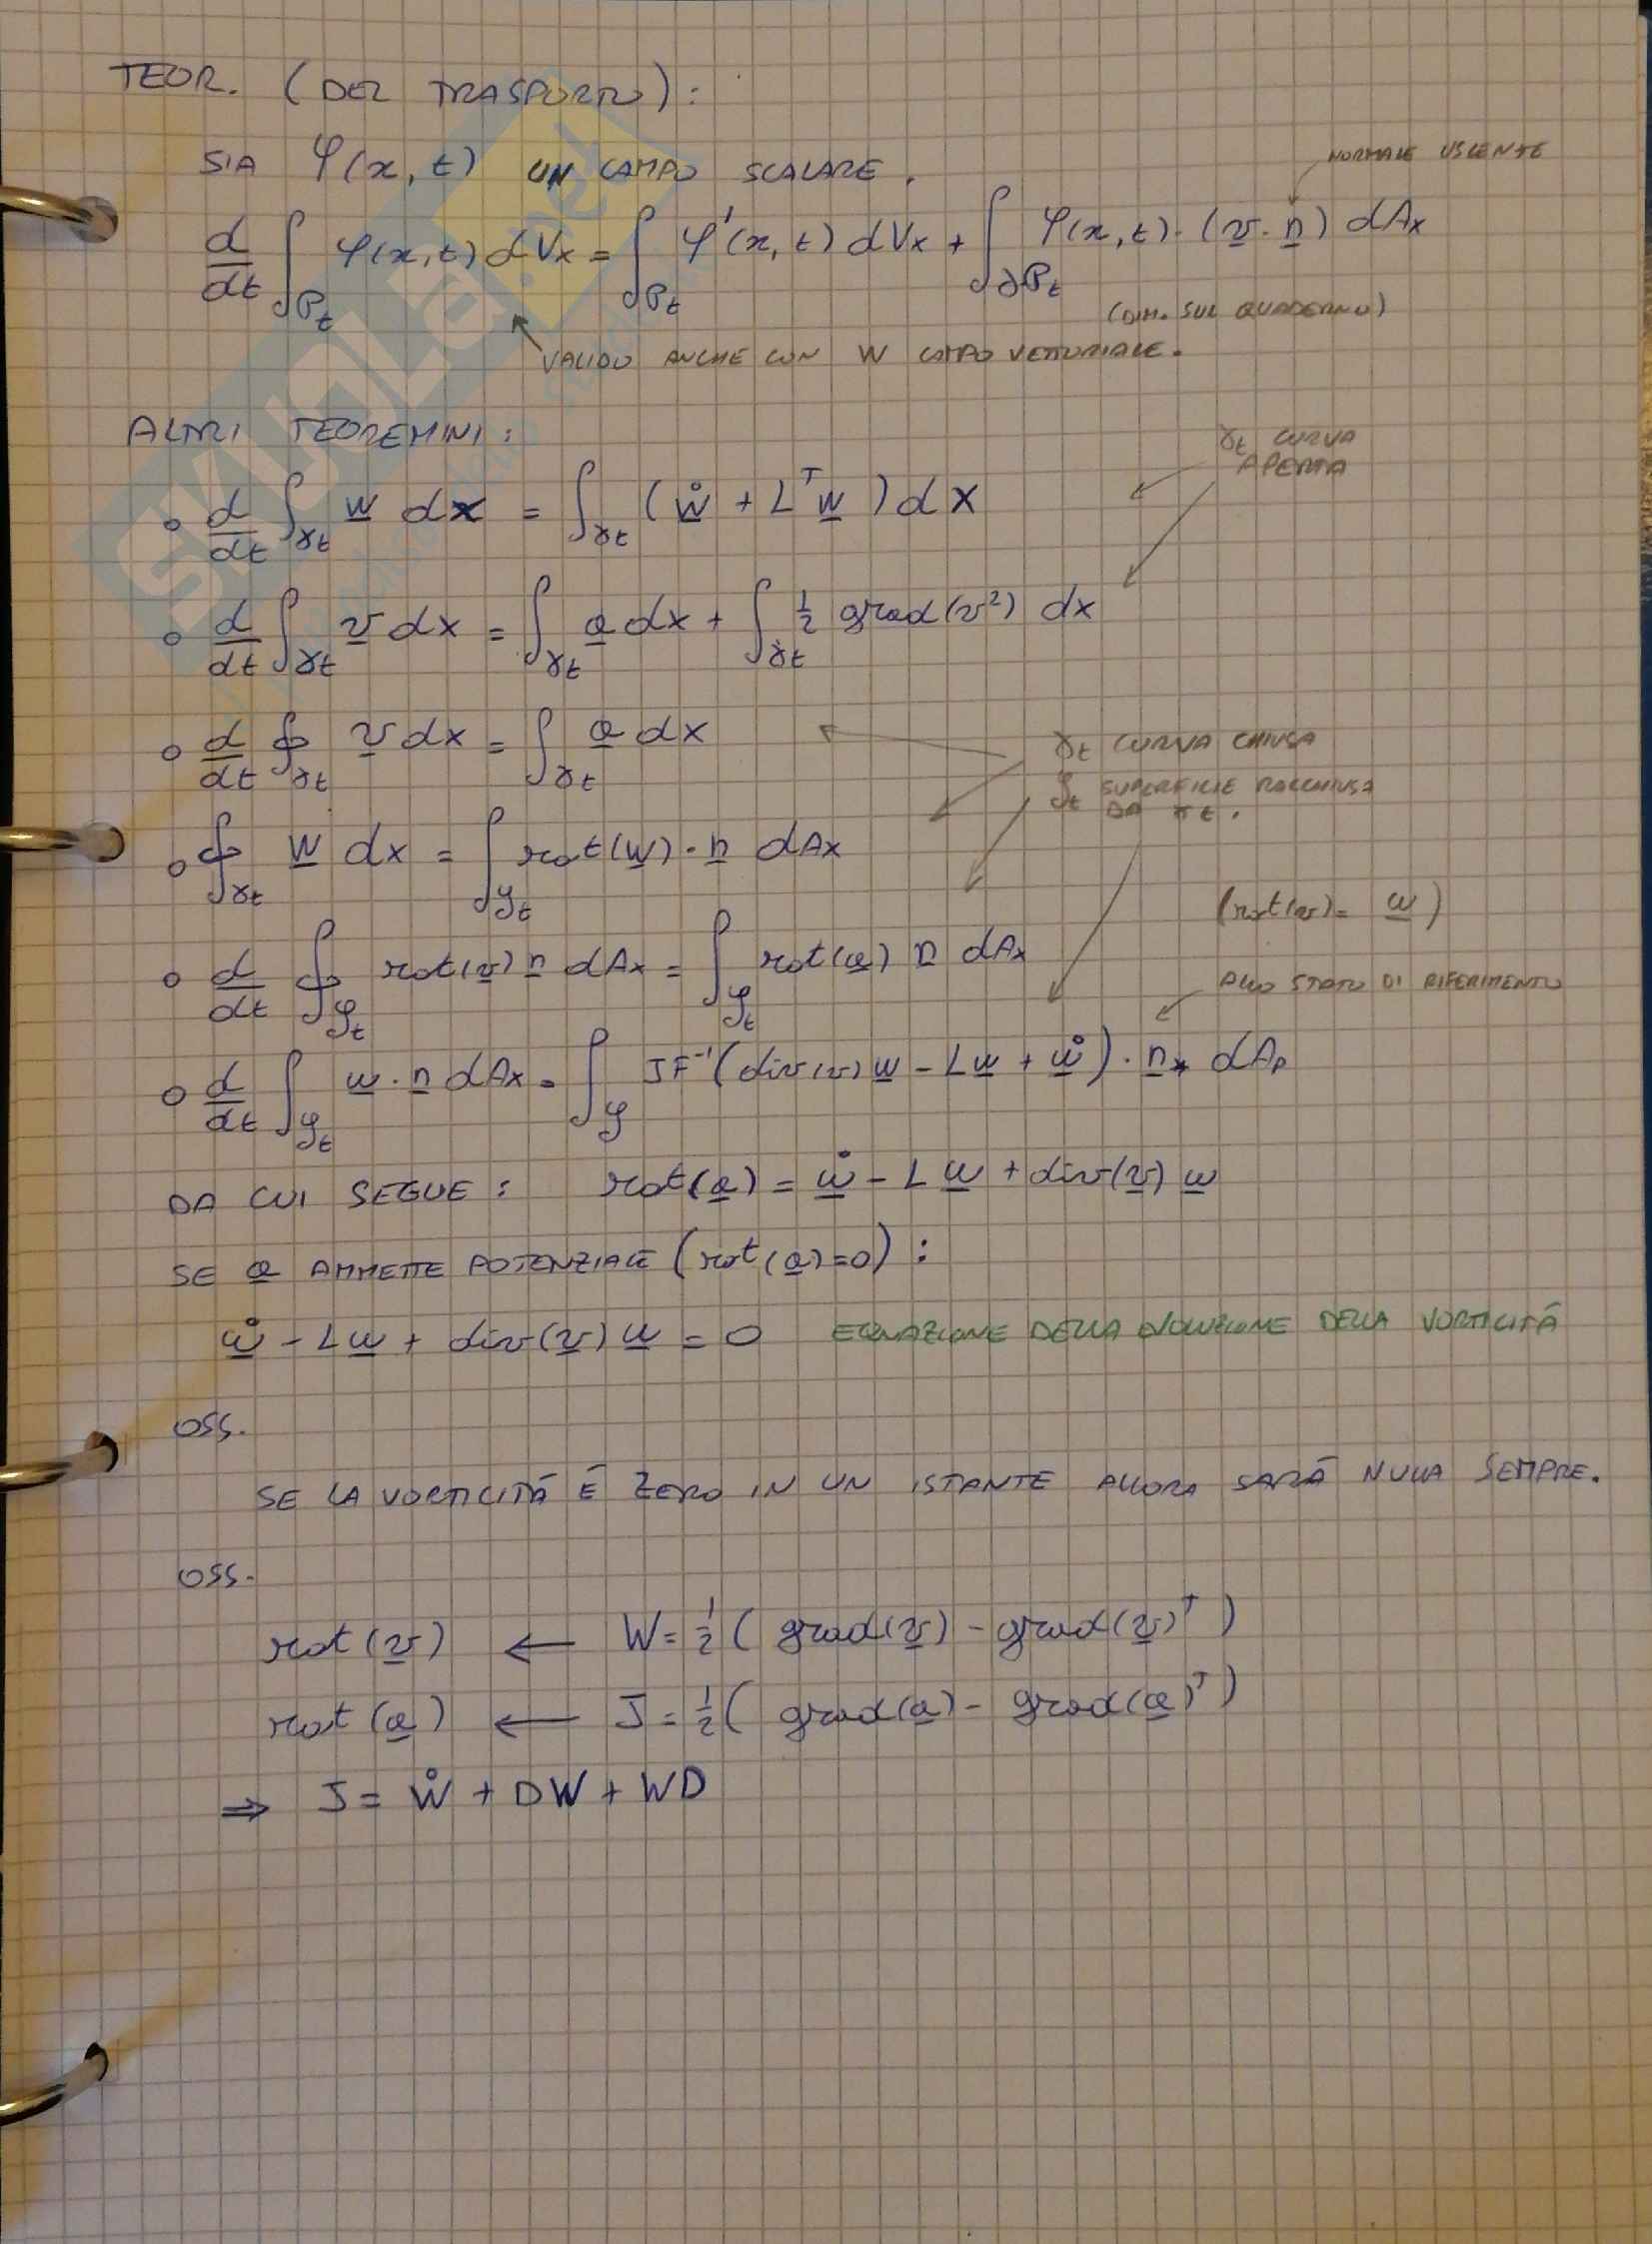 TEOR. (DEL TRASPORTO):
SIA φ(x, t) UN CAMPO SCALARE.
NORMALE USCENTE
d/dt ∫_{P_t} φ(x,t) dVx = ∫_{P_t} φ'(x,t) dVx + ∫_{∂P_t} φ(x,t)·(v·n) dAx
(DIM. SUL QUADERNO)
VALIDO ANCHE CON W CAMPO VETTORIALE.
ALTRI TEOREMINI:
γt CURVA
APERTA
∘ d/dt ∫_{γt} w dx = ∫_{γt} (ẘ + L^T w) dx
∘ d/dt ∫_{γt} v dx = ∫_{γt} a dx + ∫_{γt} 1/2 grad(v²) dx
∘ d/dt ∮_{γt} v dx = ∫_{γt} a dx
γt CURVA CHIUSA
𝒮t SUPERFICIE RACCHIUSA
DA γt.
∘ ∮_{γt} w dx = ∫_{𝒮t} rot(w)·n dAx
(rot(v) = ω)
∘ d/dt ∮_{𝒮t} rot(v) n dAx = ∫_{𝒮t} rot(a) n dAx
ALLO STATO DI RIFERIMENTO
∘ d/dt ∫_{𝒮t} w·n dAx = ∫_{𝒮} JF⁻¹(div(v) w - Lw + ẘ)·n* dAp
DA CUI SEGUE: rot(a) = ω̊ - Lω + div(v) ω
SE a AMMETTE POTENZIALE (rot(a)=0):
ω̊ - Lω + div(v) ω = 0 EQUAZIONE DELLA EVOLUZIONE DELLA VORTICITÁ
OSS.
SE LA VORTICITÁ É ZERO IN UN ISTANTE ALLORA SARÁ NULLA SEMPRE.
OSS.
rot(v) ← W = 1/2 (grad(v) - grad(v)^T)
rot(a) ← J = 1/2 (grad(a) - grad(a)^T)
⇒ J = W̊ + DW + WD
SKUOLA.net